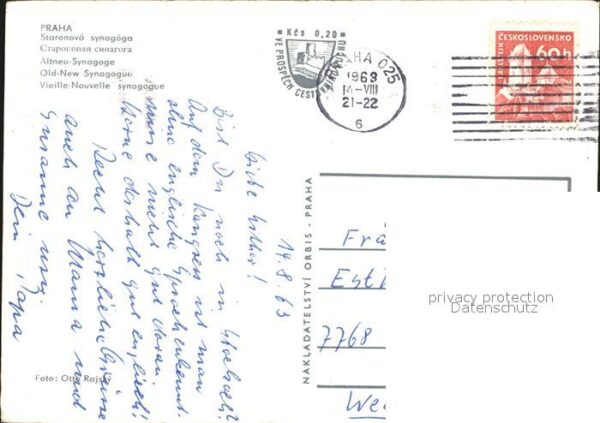 PRAHA
Staronová synagóga
Староновая синагога
Altneu-Synagoge
Old-New Synagogue
Vieille-Nouvelle synagogue
Kčs 0,20
VE PROSPĚCH CEST
PRAHA 025
1963
14-VIII
21-22
6
ČESKOSLOVENSKO
60h
14.8.63
Liebe Esther!
Bist Du noch in
Auf dem Kongress ist man
ohne englische Sprachkenntn.
nicht gut daran.
Lerne deshalb gut englisch!
Recht herzliche Grüsse
auch an Mama und
Susanne von
Dein Papa
Foto: Otto
NAKLADATELSTVÍ ORBIS - PRAHA
Frä
Est
7768
We
privacy protection
Datenschutz